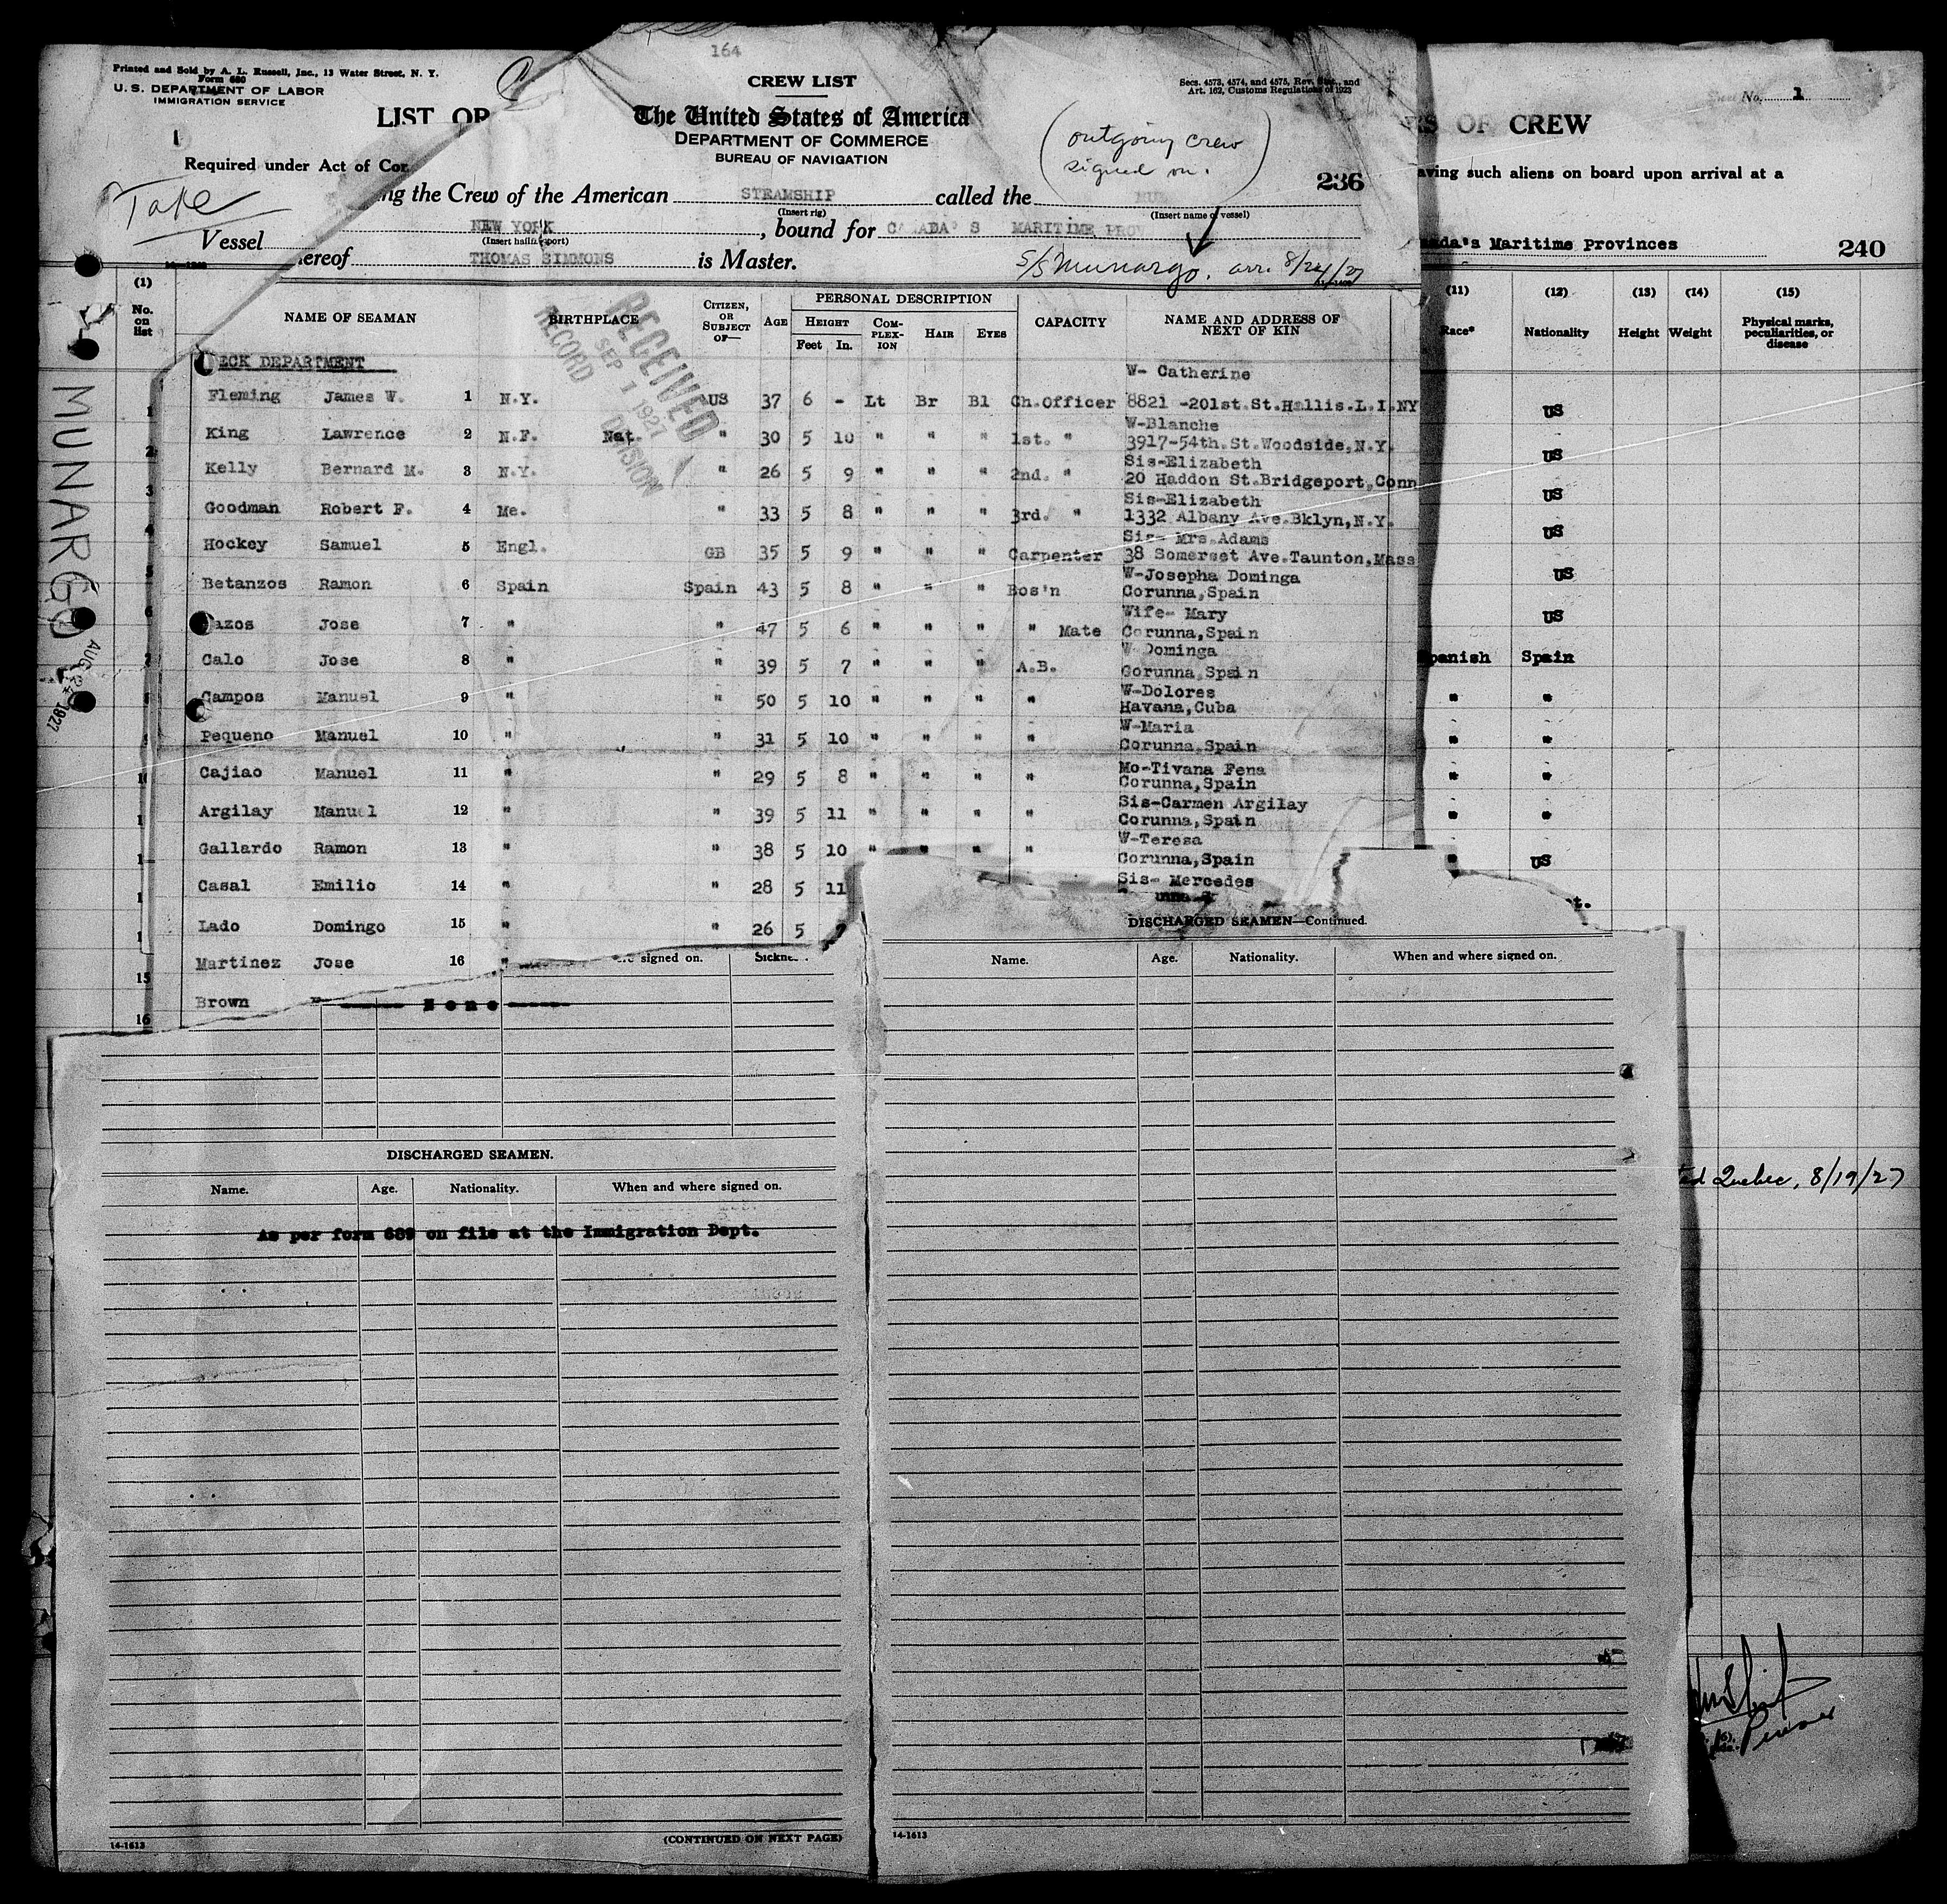 164
Printed and Sold by A. L. Russell, Inc., 13 Water Street, N. Y.
Form 680
U. S. DEPARTMENT OF LABOR
IMMIGRATION SERVICE
LIST OR
CREW LIST
The United States of America
DEPARTMENT OF COMMERCE
BUREAU OF NAVIGATION
Secs. 4573, 4574, and 4575, Rev. Stat., and
Art. 162, Customs Regulations of 1923
(outgoing crew
signed on.)
No. 1
OF CREW
1
Required under Act of Con
aving such aliens on board upon arrival at a
Take
236
ng the Crew of the American STEAMSHIP called the MU
(Insert rig) (Insert name of vessel)
Vessel NEW YORK, bound for CANADA'S MARITIME PROV
(Insert hailing port)
nada's Maritime Provinces 240
hereof THOMAS SIMMONS is Master.
S/S Munargo. arr. 8/24/27
(1) No. on list
NAME OF SEAMAN BIRTHPLACE CITIZEN, OR SUBJECT OF— AGE PERSONAL DESCRIPTION HEIGHT Feet In. COMPLEXION HAIR EYES CAPACITY NAME AND ADDRESS OF NEXT OF KIN
(11) Race* (12) Nationality (13) Height (14) Weight (15) Physical marks, peculiarities, or disease
RECEIVED
SEP 1 1927
RECORD DIVISION
MUNARGO
AUG 24 1927
ECK DEPARTMENT
W- Catherine
Fleming James W. 1 N.Y. US 37 6 - Lt Br Bl Ch.Officer 8821 -201st.St.Hollis.L.I.NY US
W-Blanche
King Lawrence 2 N.F. Nat. " 30 5 10 " " " 1st. " 3917-54th.St.Woodside,N.Y. US
Sis-Elizabeth
Kelly Bernard M. 3 N.Y. " 26 5 9 " " " 2nd. " 20 Haddon St.Bridgeport,Conn US
Sis-Elizabeth
Goodman Robert F. 4 Me. " 33 5 8 " " " 3rd. " 1332 Albany Ave.Bklyn,N.Y. US
Sis- Mrs.Adams
Hockey Samuel 5 Engl. GB 35 5 9 " " " Carpenter 38 Somerset Ave.Taunton,Mass US
W-Josepha Dominga
Betanzos Ramon 6 Spain Spain 43 5 8 " " " Bos'n Corunna,Spain US
Wife- Mary
azos Jose 7 " " 47 5 6 " " " " Mate Corunna,Spain
W-Dominga
Calo Jose 8 " " 39 5 7 " " " A.B. Corunna,Spain panish Spain
W-Dolores
Campos Manuel 9 " " 50 5 10 " " " " Havana,Cuba " "
W-Maria
Pequeno Manuel 10 " " 31 5 10 " " " " Corunna,Spain " "
Mo-Tivana Fena
Cajiao Manuel 11 " " 29 5 8 " " " " Corunna,Spain " "
Sis-Carmen Argilay
Argilay Manuel 12 " " 39 5 11 " " " " Corunna,Spain " "
W-Teresa
Gallardo Ramon 13 " " 38 5 10 " " " " Corunna,Spain " US
Casal Emilio 14 " " 28 5 11 Sis- Mercedes
Lado Domingo 15 " " 26 5
Martinez Jose 16 "
15
Brown
16
signed on.
None
DISCHARGED SEAMEN—Continued.
Name. Age. Nationality. When and where signed on.
DISCHARGED SEAMEN.
Name. Age. Nationality. When and where signed on.
As per form 689 on file at the Immigration Dept.
Quebec, 8/19/27
Purser
14-1613 (CONTINUED ON NEXT PAGE)
14-1613